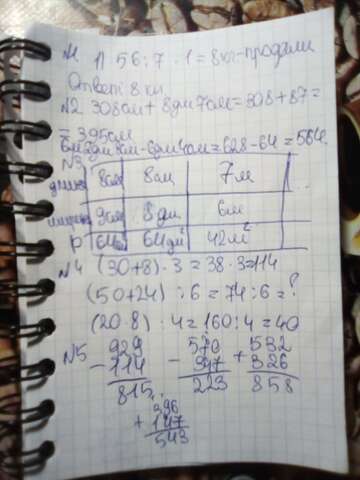 N1 1) 56:7·1=8кг-продали
Ответ: 8 кг.
N2 308см+8дм7см=308+87=
=395см
6м2дм8см-6дм4см=628-64=564
N3
длина 8см 8дм 7м
ширина 9см 8дм 6м
P 64дм² 42м²
N4 (30+8)·3=38·3=114
(50+24):6=74:6=?
(20·8):4=160:4=40
N5 929 570 532
-114 - 347 + 326
815 223 858
396
+147
543